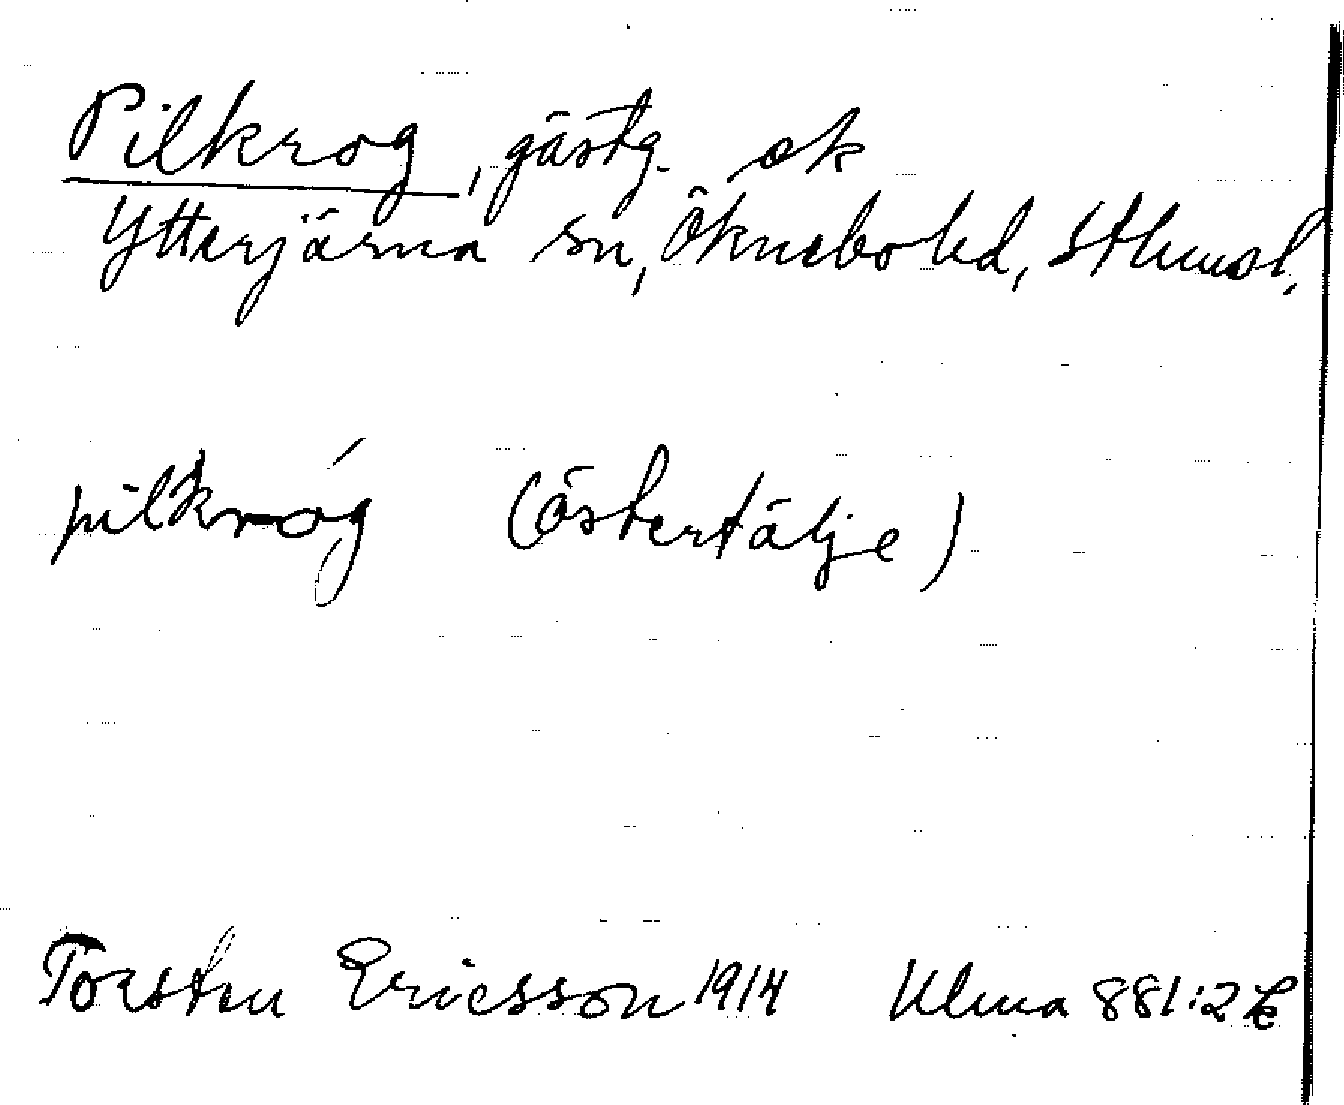 Pilkrog, gästg. ok
Ytterjärna sn, Öknebo hd, Sthmsl.
pilkróg (östertälje)
Torsten Ericsson 1914 Ulma 881:2